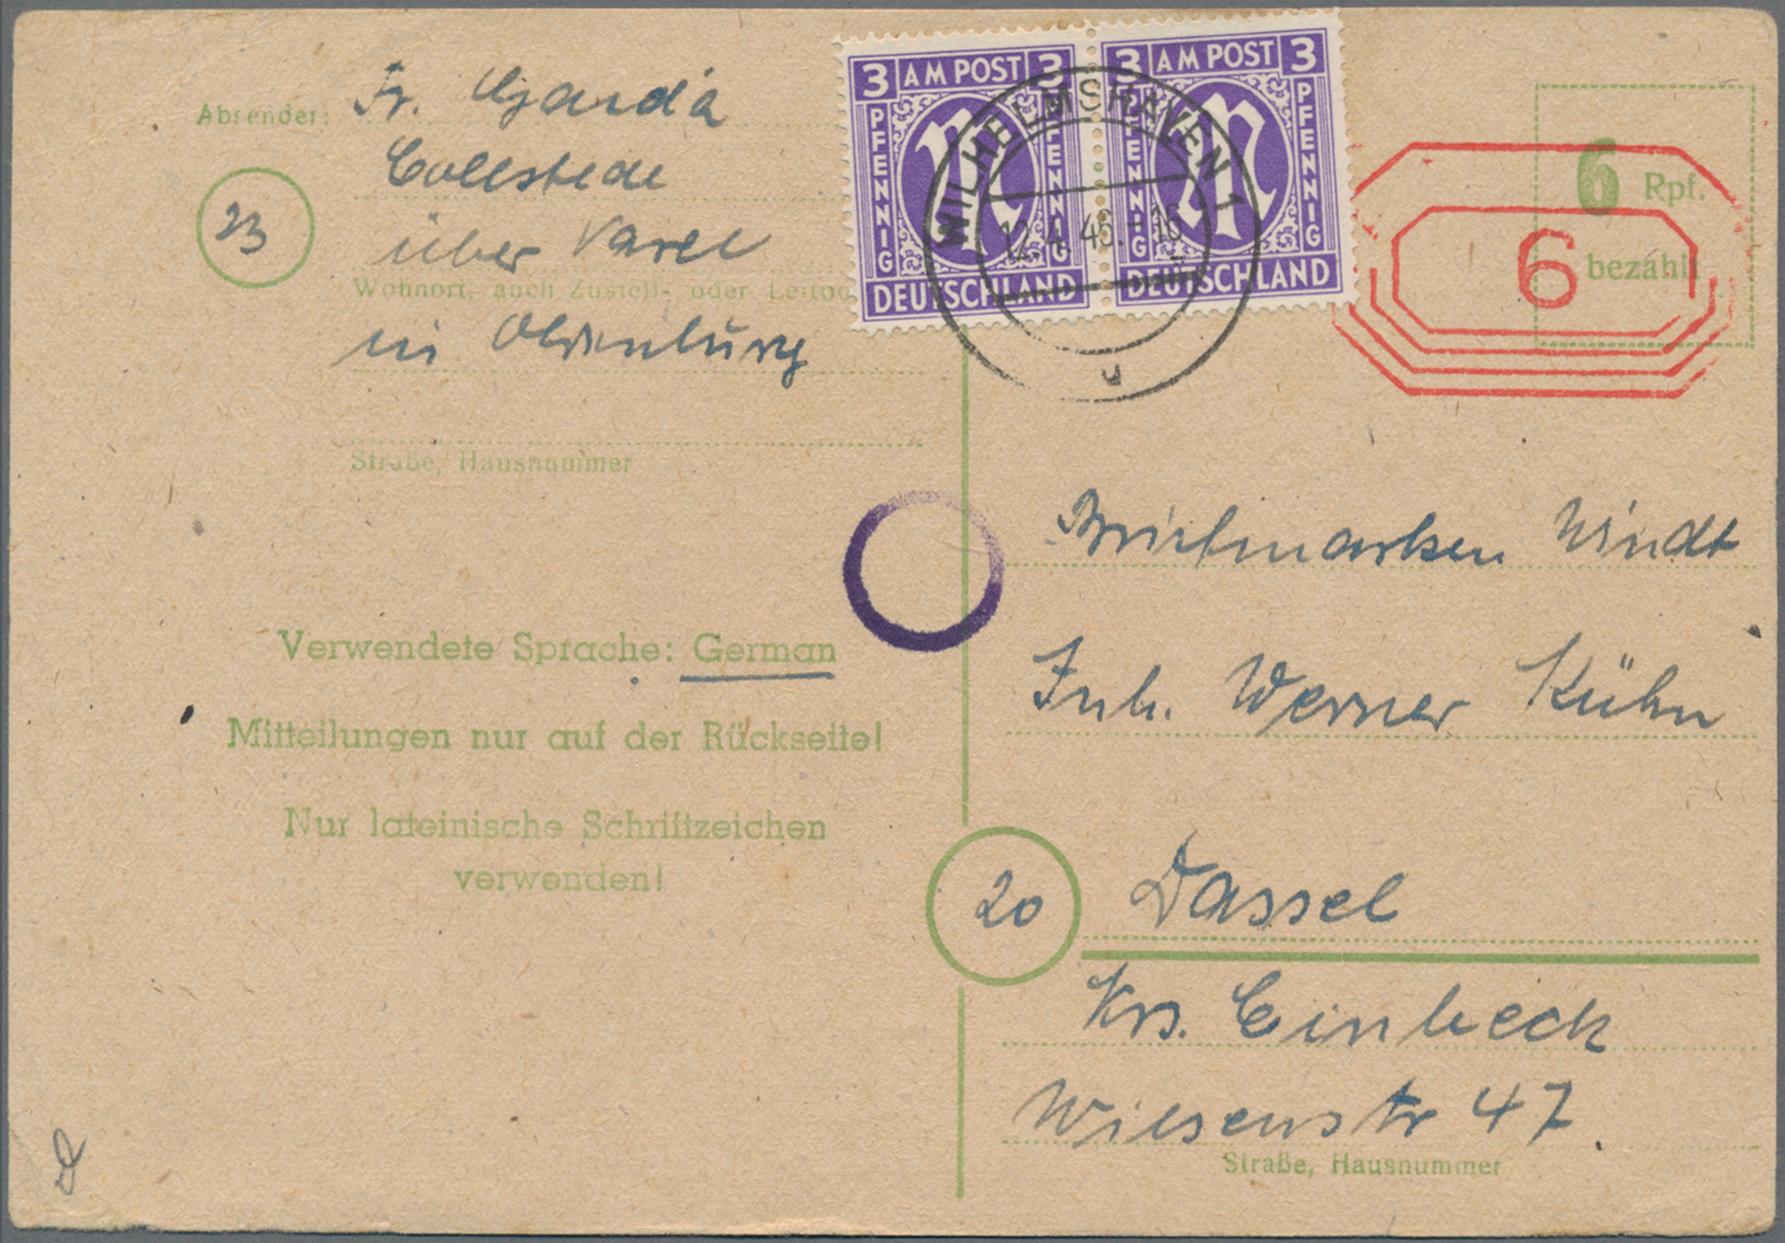 Absender: Fr. Gjarda
Collstede
23
über Varel
Wohnort, auch Zustell- oder Leitpo
in Oldenburg
Straße, Hausnummer
3 AM POST 3
PFENNIG PFENNIG
DEUTSCHLAND
3 AM POST 3
PFENNIG PFENNIG
DEUTSCHLAND
WILHELMSHAVEN 1
12.4.46.-16
u
6 Rpf.
bezahlt
6
Verwendete Sprache: German
Mitteilungen nur auf der Rückseite!
Nur lateinische Schriftzeichen
verwenden!
Briefmarken Windt
Inh. Werner Kühn
20 Dassel
Krs. Einbeck
Wiesenstr 47.
Straße, Hausnummer